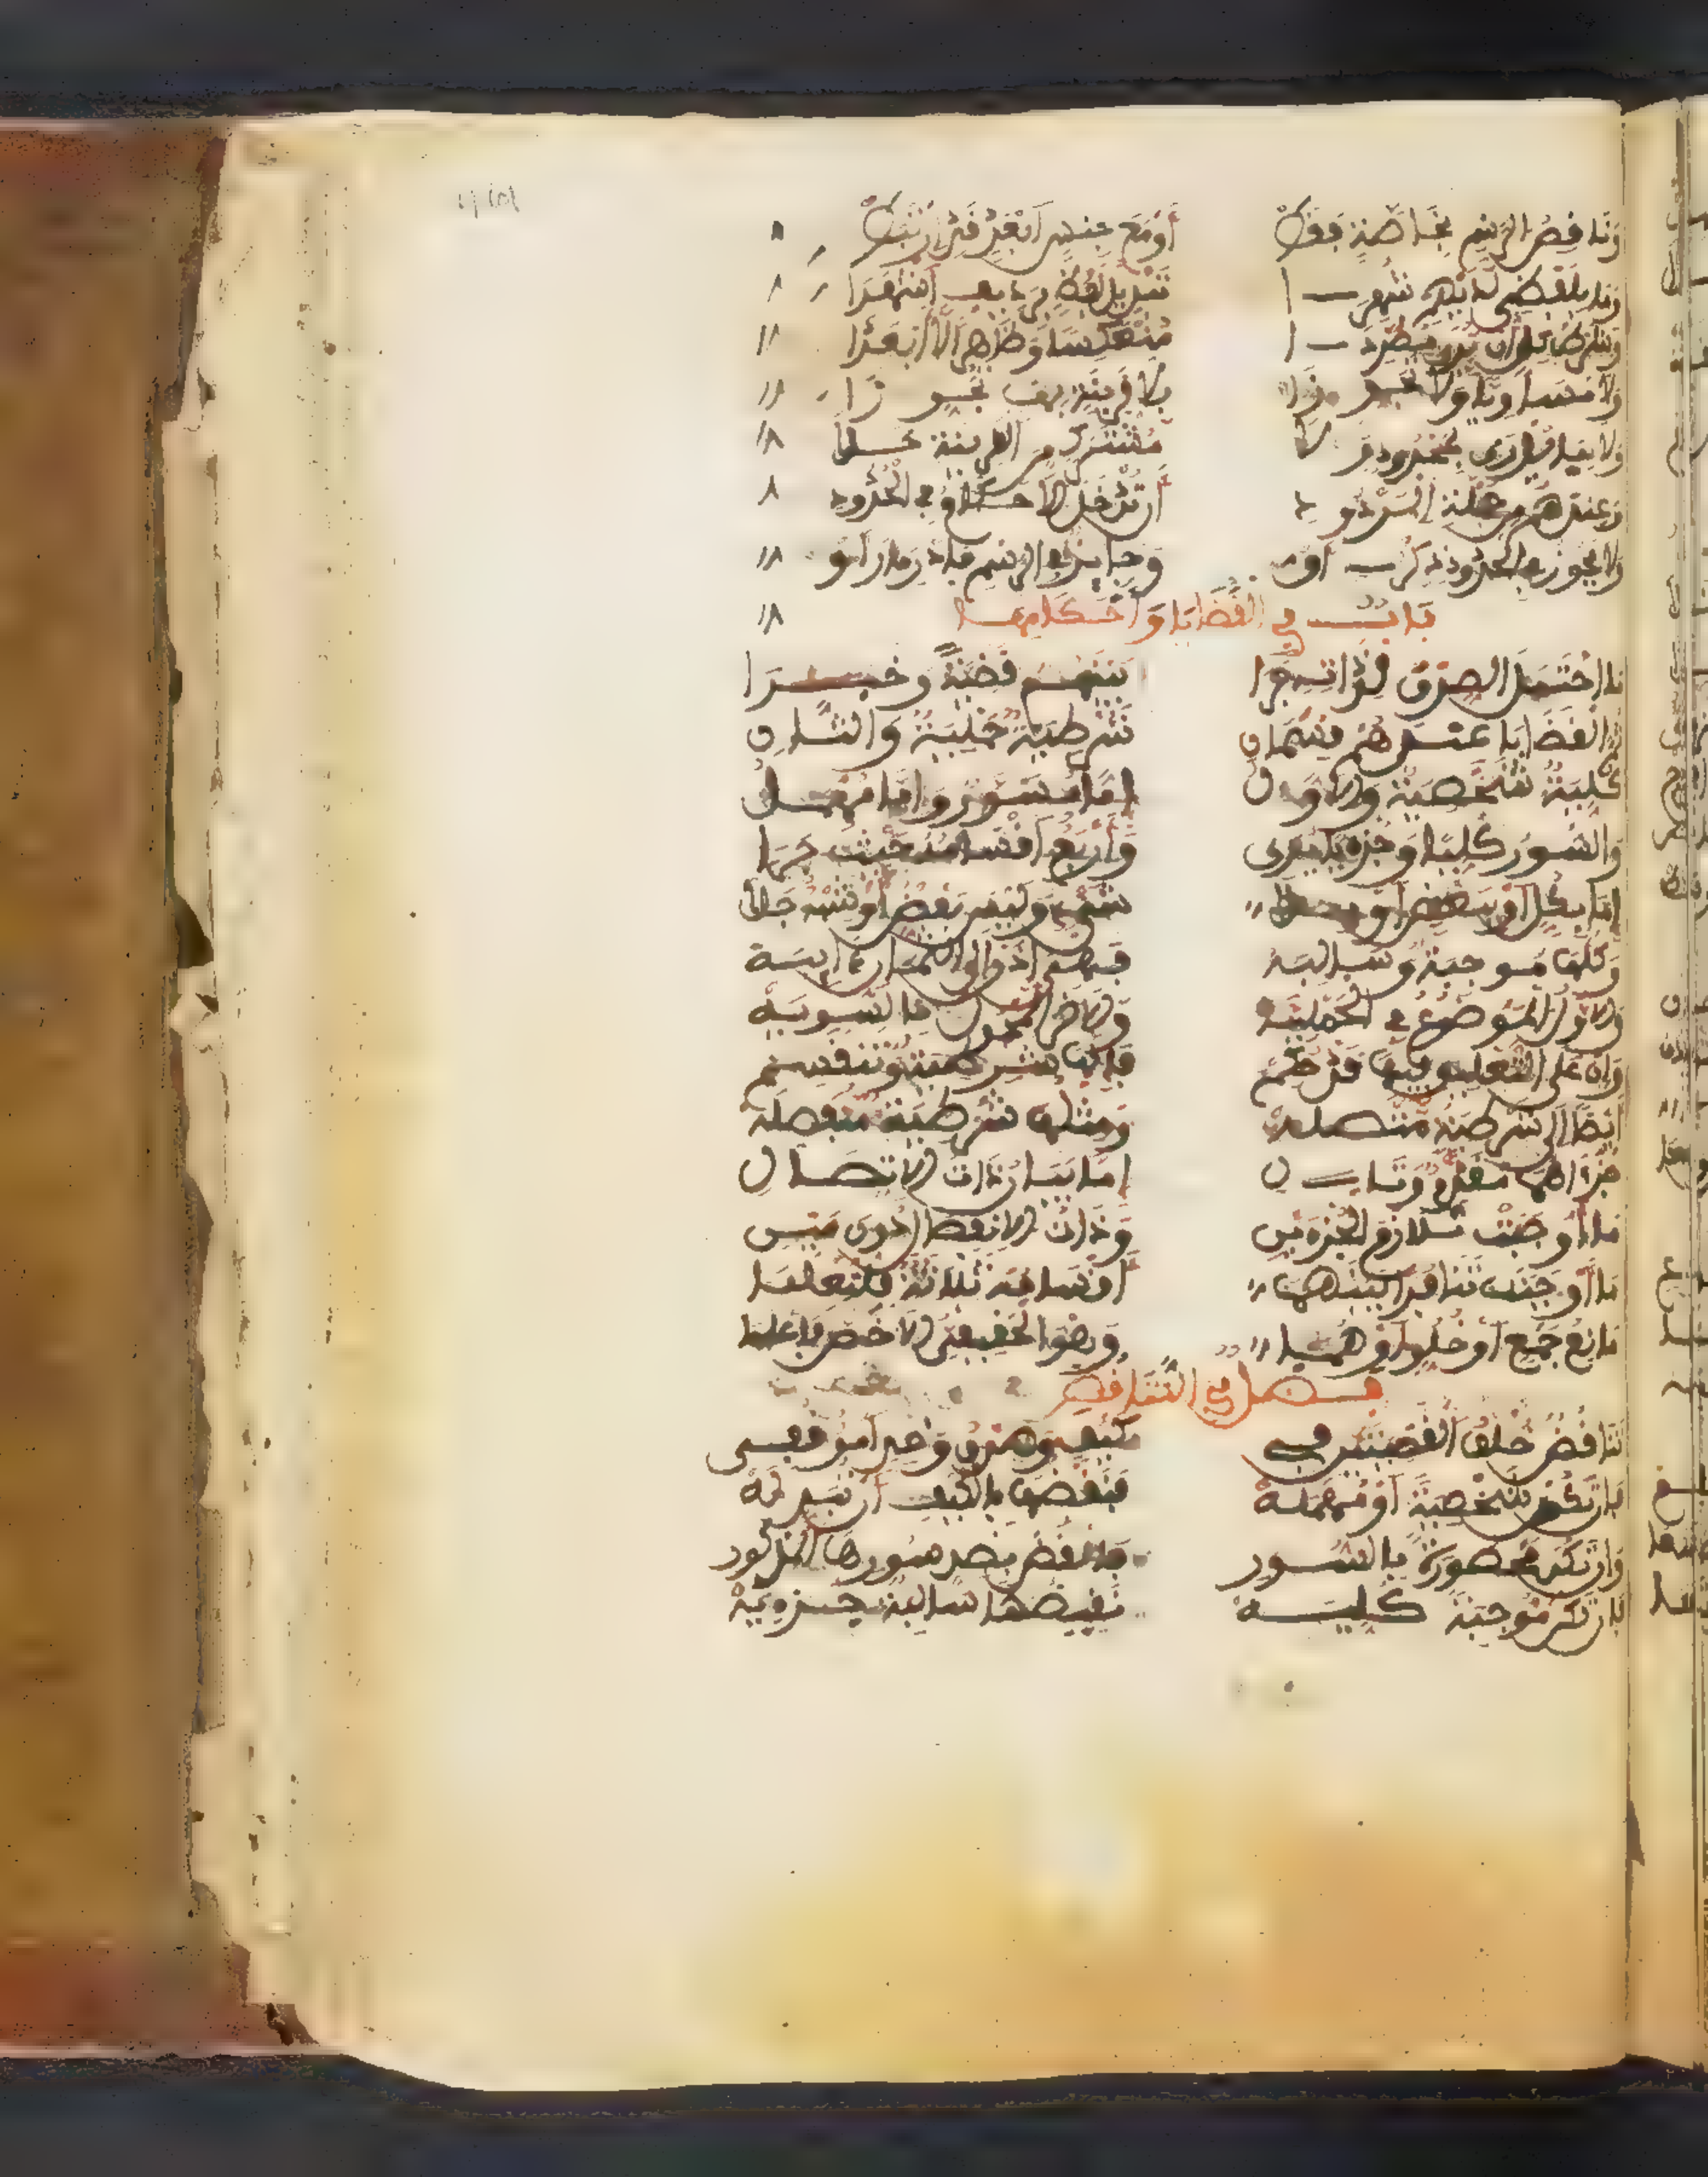 وَنَاقِصُ الرَّسْمِ بِخَاصَّةٍ فَقَطْ أَوْ مَعَ جِنْسٍ أَبْعَدٍ قَدِ ارْتَبَطْ
وَمَا بِلَفْظِيٍّ لَدَيْهِمْ شُهِرَا تَبْدِيلُ لَفْظٍ بِرَدِيفٍ أَشْهَرَا
وَشَرْطُ كُلٍّ أَنْ يُرَى مُطَّرِدَا مُنْعَكِسًا وَظَاهِرًا لَا أَبْعَدَا
وَلَا مُسَاوِيًا وَلَا تَجَوُّزَا بِلَا قَرِينَةٍ بِهَا تُحُرِّزَا
وَلَا بِمَا يُدْرَى بِمَحْدُودٍ وَلَا مُشْتَرَكٍ مِنَ الْقَرِينَةِ خَلَا
وَعِنْدَهُمْ مِنْ جُمْلَةِ الْمَرْدُودِ أَنْ تَدْخُلَ الْأَحْكَامُ فِي الْحُدُودِ
وَلَا يَجُوزُ فِي الْحُدُودِ ذِكْرُ أَوْ وَجَائِزٌ فِي الرَّسْمِ فَادْرِ مَا رَأَوْ
بَابٌ فِي الْقَضَايَا وَأَحْكَامِهَا
مَا احْتَمَلَ الصِّدْقَ لِذَاتِهِ جَرَا بَيْنَهُمْ قَضِيَّةً وَخَبَرَا
ثُمَّ الْقَضَايَا عِنْدَهُمْ قِسْمَانِ شَرْطِيَّةٌ حَمْلِيَّةٌ وَالثَّانِ
كُلِّيَّةٌ شَخْصِيَّةٌ وَالْأَوَّلُ إِمَّا مُسَوَّرٌ وَإِمَّا مُهْمَلُ
وَالسُّورُ كُلِّيًّا وَجُزْئِيًّا يُرَى وَأَرْبَعٌ أَقْسَامُهُ حَيْثُ جَرَا
إِمَّا بِكُلٍّ أَوْ بِبَعْضٍ أَوْ بِلَا شَيْءٍ وَلَيْسَ بَعْضُ أَوْ شِبْهٍ جَلَا
وَكُلُّهَا مُوجِبَةٌ وَسَالِبَهْ فَهِيَ إِذًا إِلَى الثَّمَانِ آيِبَهْ
وَالْأَوَّلُ الْمَوْضُوعُ فِي الْحَمْلِيَّهْ وَالْآخِرُ الْمَحْمُولُ بِالسَّوِيَّهْ
وَإِنْ عَلَى التَّعْلِيقِ فِيهَا قَدْ حُكِمْ فَإِنَّهَا شَرْطِيَّةٌ وَتَنْقَسِمْ
أَيْضًا إِلَى شَرْطِيَّةٍ مُتَّصِلَهْ وَمِثْلُهَا شَرْطِيَّةٌ مُنْفَصِلَهْ
جُزْءَاهُمَا مُقَدَّمٌ وَتَالِي أَمَّا بَيَانُ ذَاتِ الِاتِّصَالِ
مَا أَوْجَبَتْ تَلَازُمَ الْجُزْءَيْنِ وَذَاتُ الِانْفِصَالِ دُونَ مَيْنِ
مَا أَوْجَبَتْ تَنَافُرًا بَيْنَهُمَا أَقْسَامُهَا ثَلَاثَةٌ فَلْتُعْلَمَا
مَانِعُ جَمْعٍ أَوْ خُلُوٍّ أَوْ هُمَا وَهُوَ الْحَقِيقِيُّ الْأَخَصُّ فَاعْلَمَا
فصل في التَّنَاقُضِ
تَنَاقُضٌ خُلْفُ الْقَضِيَّتَيْنِ فِي كَيْفٍ وَصِدْقُ وَاحِدٍ أَمْرٌ قُفِي
فَإِنْ تَكُنْ شَخْصِيَّةً أَوْ مُهْمَلَهْ فَنَقْضُهَا بِالْكَيْفِ أَنْ تُبَدِّلَهْ
وَإِنْ تَكُنْ مَحْصُورَةً بِالسُّورِ فَانْقُضْ بِضِدِّ سُورِهَا الْمَذْكُورِ
فَإِنْ تَكُنْ مُوجِبَةً كُلِّيَّهْ نَقِيضُهَا سَالِبَةٌ جُزْئِيَّهْ